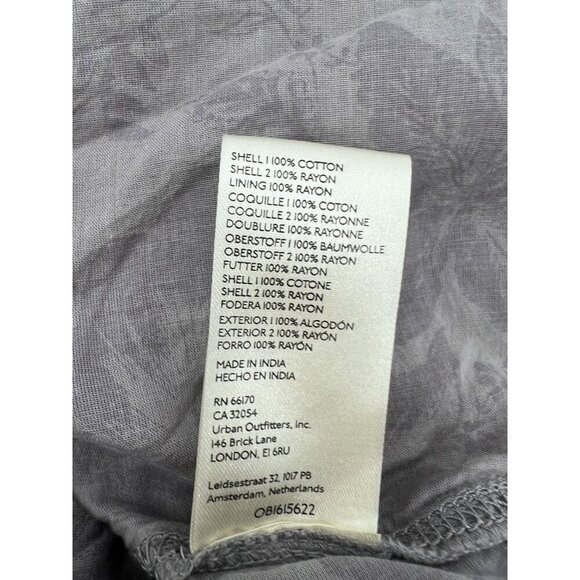 SHELL 1 100% COTTON
SHELL 2 100% RAYON
LINING 100% RAYON
COQUILLE 1 100% COTON
COQUILLE 2 100% RAYONNE
DOUBLURE 100% RAYONNE
OBERSTOFF 1 100% BAUMWOLLE
OBERSTOFF 2 100% RAYON
FUTTER 100% RAYON
SHELL 1 100% COTONE
SHELL 2 100% RAYON
FODERA 100% RAYON
EXTERIOR 1 100% ALGODÓN
EXTERIOR 2 100% RAYÓN
FORRO 100% RAYÓN
MADE IN INDIA
HECHO EN INDIA
RN 66170
CA 32054
Urban Outfitters, Inc.
146 Brick Lane
LONDON, E1 6RU
Leidsestraat 32, 1017 PB
Amsterdam, Netherlands
OB1615622